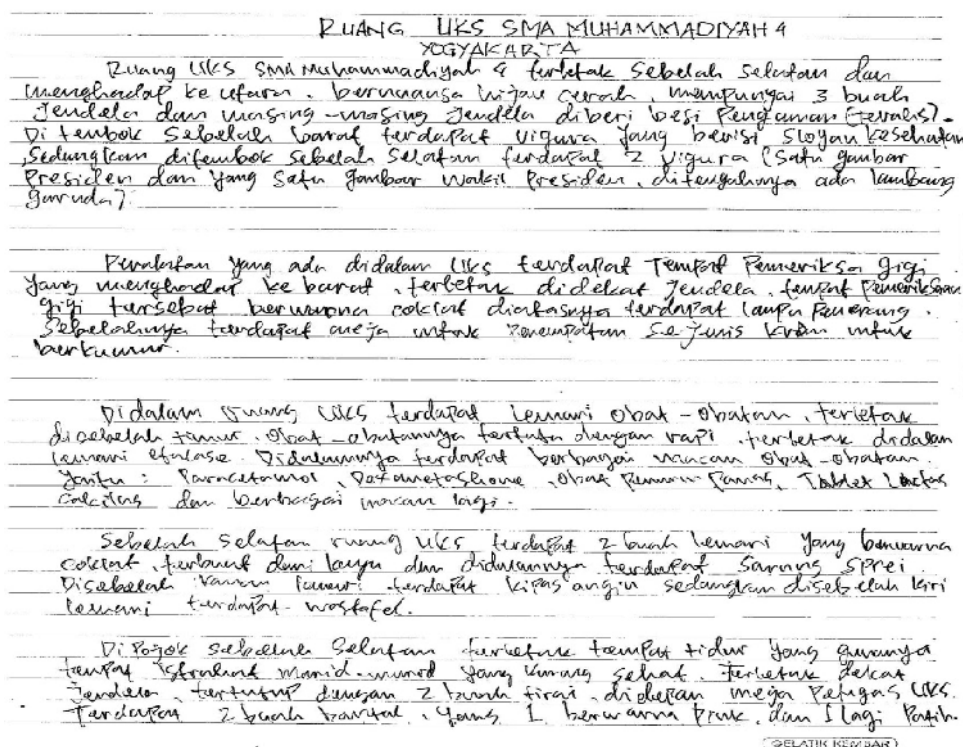 RUANG UKS SMA MUHAMMADIYAH 4
YOGYAKARTA
Ruang UKS SMA Muhammadiyah 4 terletak Sebelah Selatan dan
menghadap ke utara. bernuansa hijau cerah, mempunyai 3 buah
Jendela dan masing-masing Jendela diberi besi Pengaman (teralis).
Di tembok Sebelah barat terdapat vigura yang berisi slogan kesehatan
, Sedangkan ditembok sebelah Selatan terdapat 2 Vigura (Satu gambar
Presiden dan yang Satu gambar Wakil Presiden, ditengahnya ada lambang
garuda).
Peralatan yang ada didalam UKS terdapat Tempat Pemeriksa gigi
yang menghadap ke barat, terletak didekat Jendela, tempat Pemeriksaan
gigi tersebut berwarna coklat diatasnya terdapat lampu Penerang.
Sebelahnya terdapat meja untuk Penempatan Sejenis kran untuk
berkumur.
Didalam ruang UKS terdapat Lemari Obat-obatan, terletak
disebelah timur. Obat-obatannya tertata dengan rapi, terletak didalam
lemari etalase. Didalamnya terdapat berbagai macam Obat-obatan
Yaitu: Paracetamol, Dexametashone, Obat Penurun Panas, Tablet
dan berbagai macam lagi.
Sebelah Selatan ruang UKS terdapat 2 buah Lemari yang berwarna
coklat, terbuat dari kayu dan didalamnya terdapat Sarung Sprei
Disebelah kanan lemari terdapat kipas angin sedangkan disebelah kiri
lemari terdapat wastafel.
Di Pojok sebelah Selatan terletak tempat tidur yang gunanya
tempat istirahat murid-murid yang kurang sehat. Terletak dekat
Jendela, tertutup dengan 2 buah tirai, didepan meja Petugas UKS.
Terdapat 2 buah bantal, yang 1 berwarna Pink, dan 1 lagi Putih.
GELATIK KEMBAR